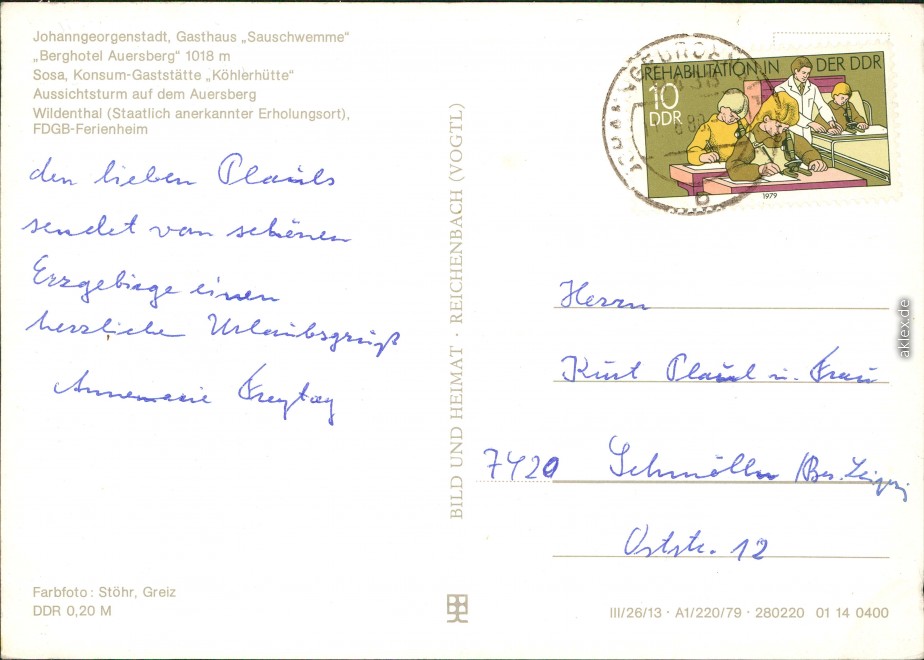 Johanngeorgenstadt, Gasthaus „Sauschwemme"
„Berghotel Auersberg" 1018 m
Sosa, Konsum-Gaststätte „Köhlerhütte"
Aussichtsturm auf dem Auersberg
Wildenthal (Staatlich anerkannter Erholungsort),
FDGB-Ferienheim
den lieben Plauls
sendet vom schönen
Erzgebirge einen
herzliche Urlaubsgrüß
Annemarie Freytag
Farbfoto: Stöhr, Greiz
DDR 0,20 M
BILD UND HEIMAT · REICHENBACH (VOGTL)
REHABILITATION IN DER DDR
10
DDR
1979
Herrn
Kurt Plaul u. Frau
7420 Schmölln /Bez. Leipzig
Oststr. 12
III/26/13 · A1/220/79 · 280220 01 14 0400
aklex.de